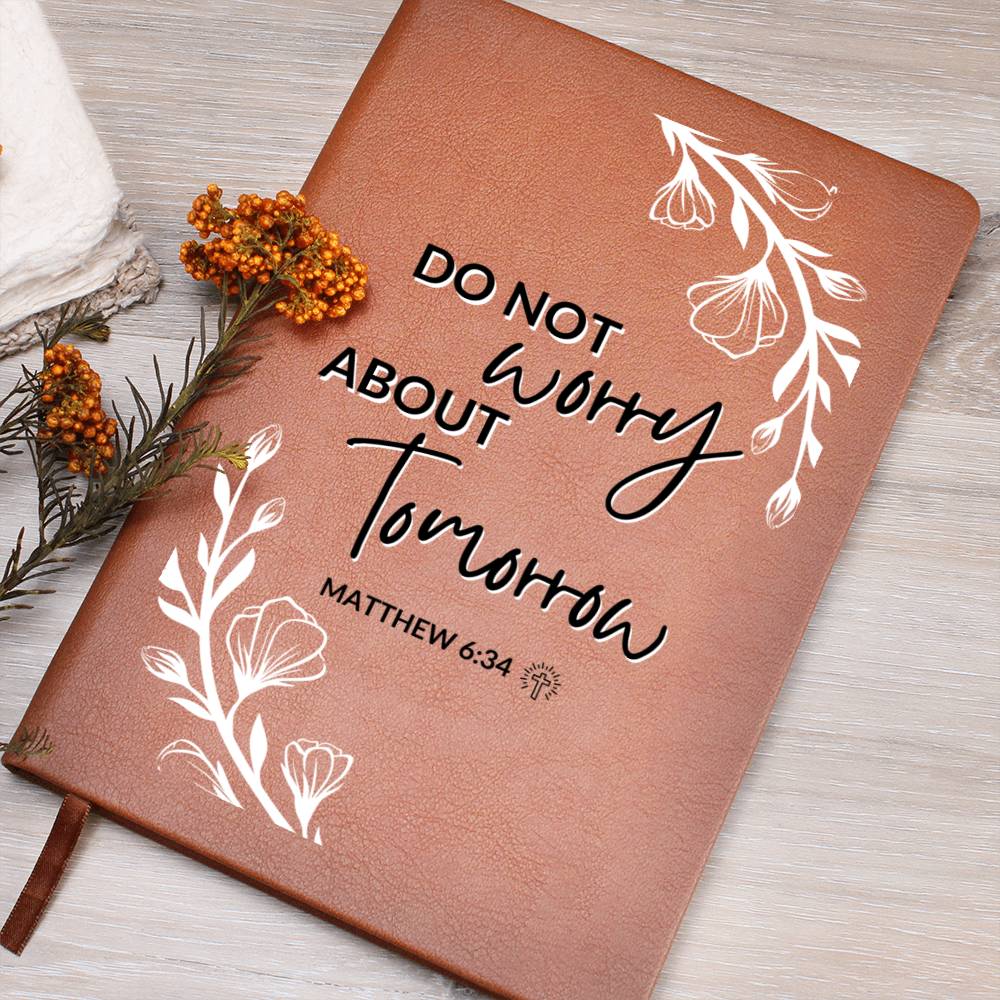 DO NOT
worry
ABOUT
Tomorrow
MATTHEW 6:34